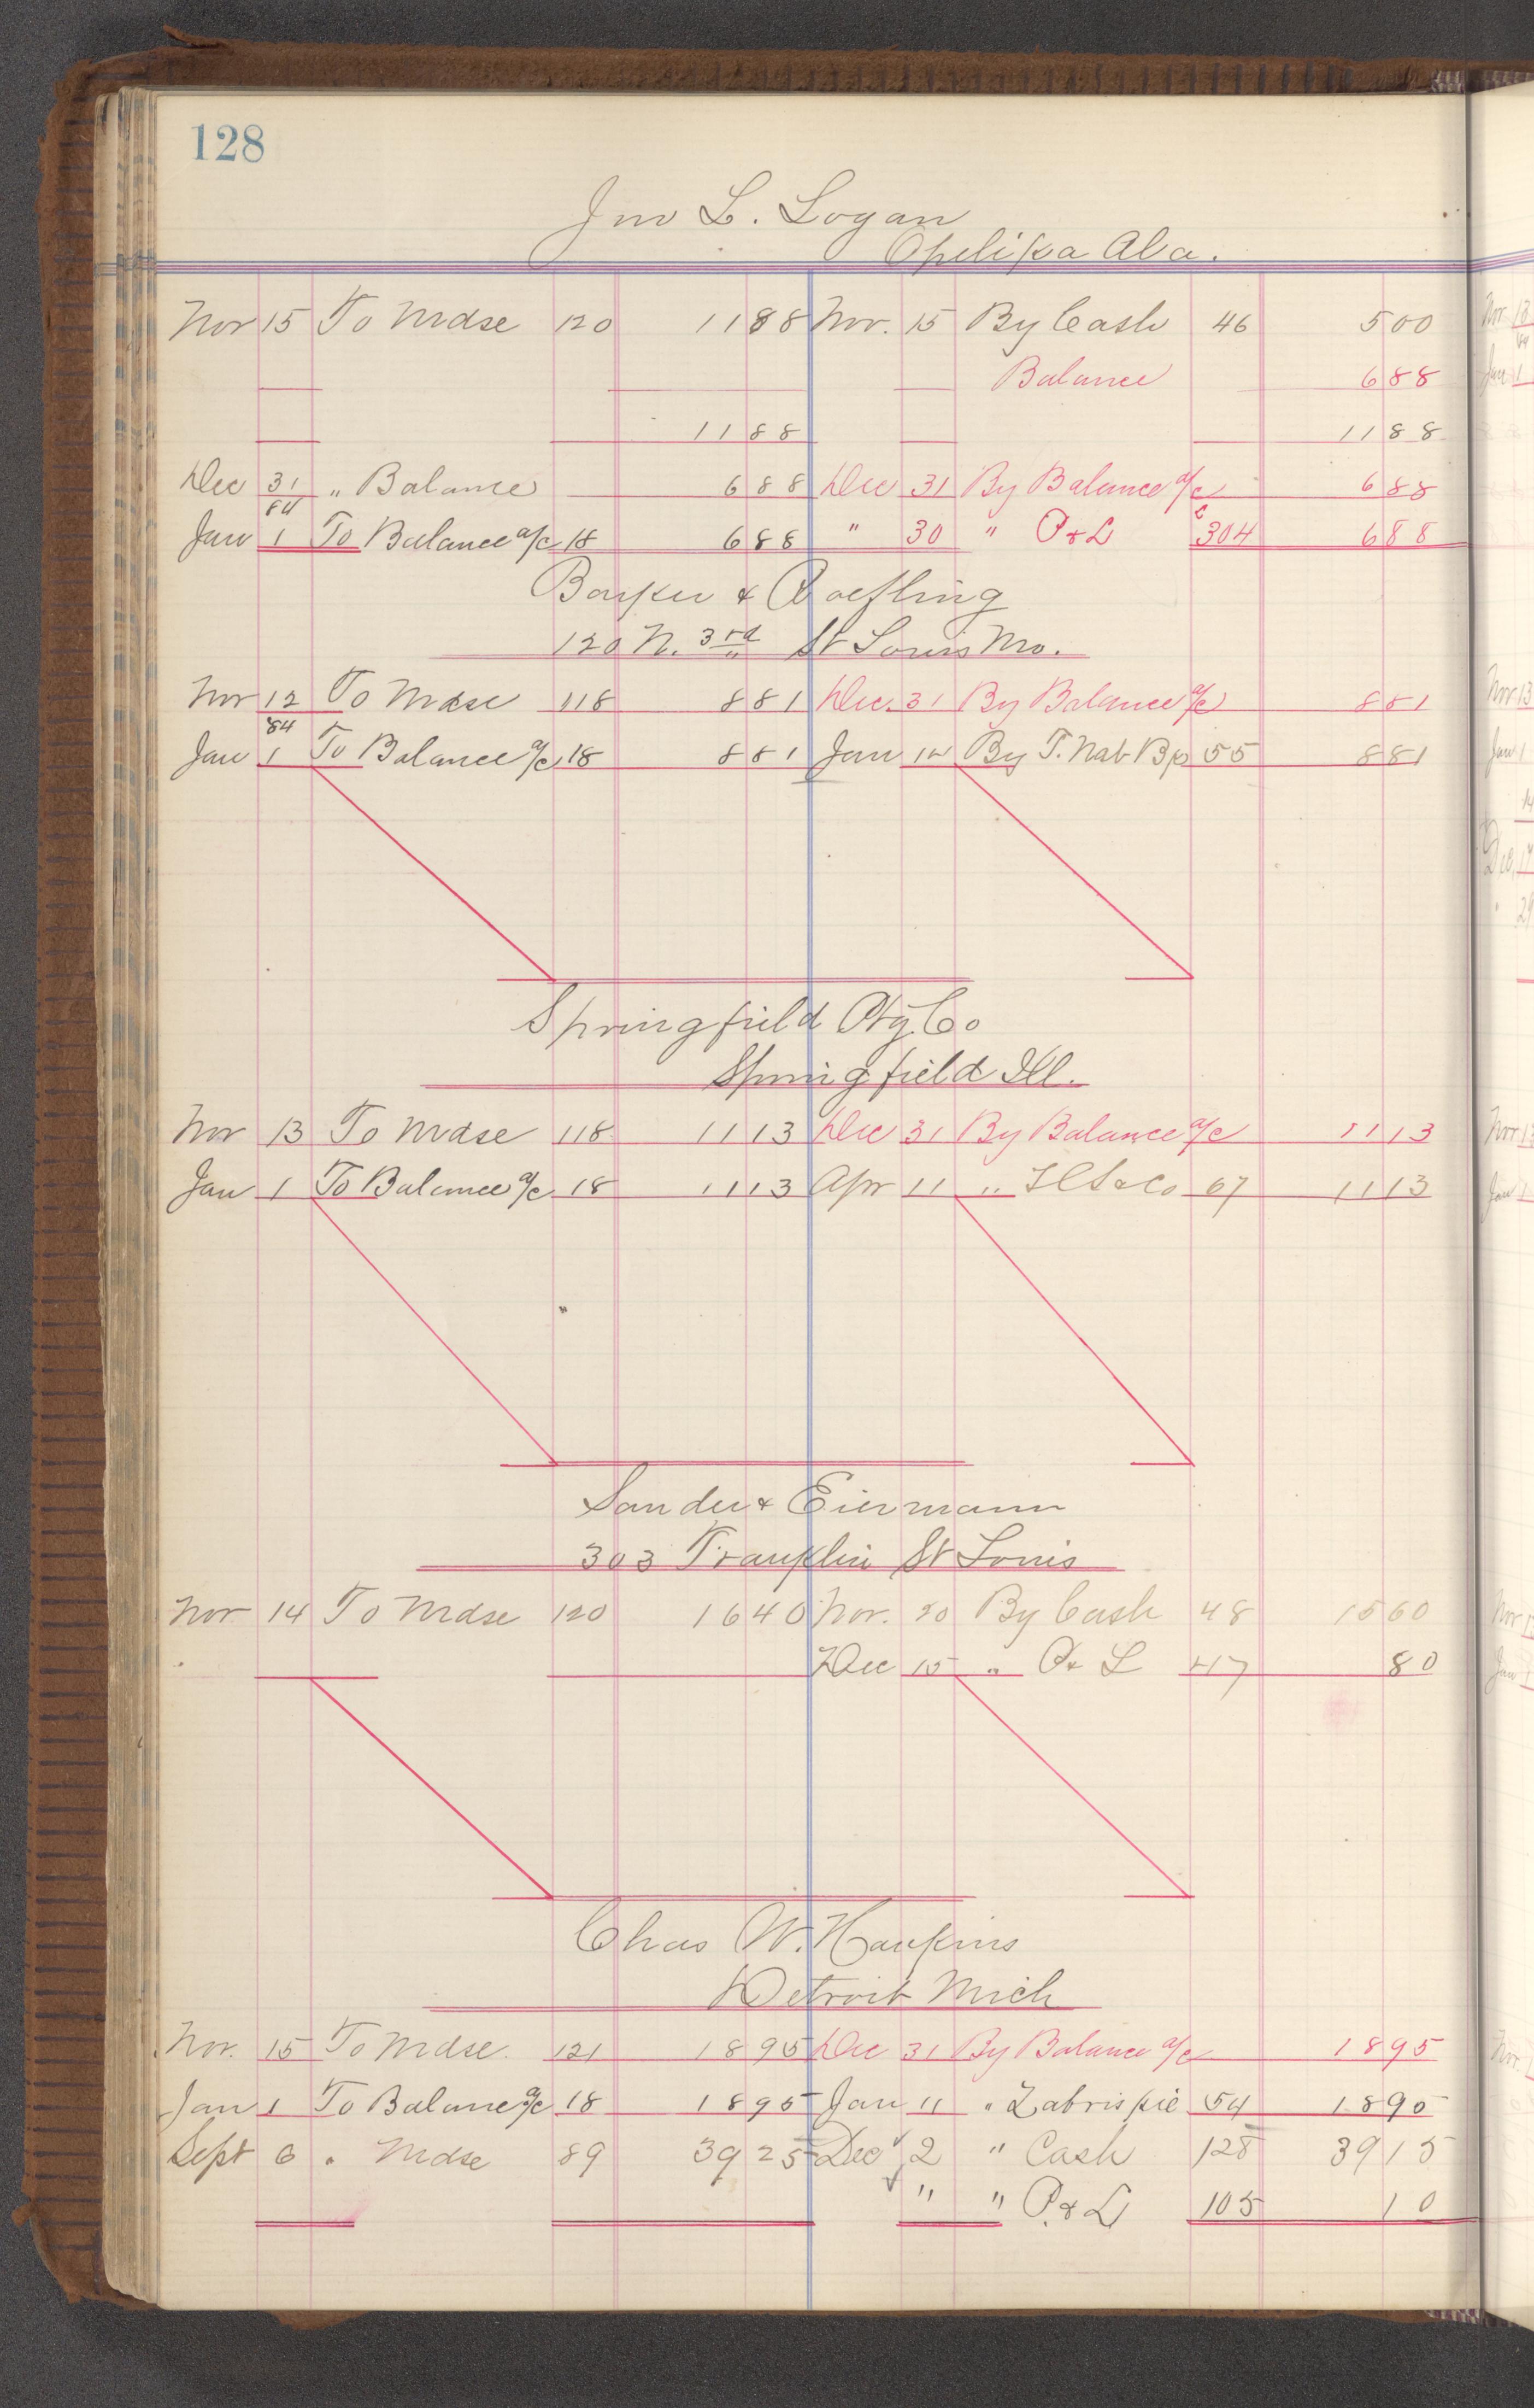 128
Jno L. Logan
Opelika Ala.
Nov 15 To Mdse 120 1188 Nov. 15 By Cash 46 500
Balance 688
1188 1188
Dec 31 " Balance 688 Dec 31 By Balance a/c 688
84
Jan 1 To Balance a/c 18 688 " 30 " P & L 304 688
Barker &
120 N. 3rd St Louis Mo.
Nov 12 To Mdse 118 881 Dec. 31 By Balance a/c 881
84
Jan 1 To Balance a/c 18 881 Jan 12 By T. Nat Bk 55 881
Springfield Co
Springfield Ill.
Nov 13 To Mdse 118 1113 Dec 31 By Balance a/c 1113
Jan 1 To Balance a/c 18 1113 Apr 11 " & Co 67 1113
Sander & Eiermann
303 Franklin St Louis
Nov 14 To Mdse 120 1640 Nov. 20 By Cash 48 1560
Dec 15 " P & L 417 80
Chas W. Hankins
Detroit Mich
Nov. 15 To Mdse. 121 1895 Dec 31 By Balance a/c 1895
Jan 1 To Balance a/c 18 1895 Jan 11 " Zabriskie 54 1895
Sept 6 " Mdse 89 3925 Dec 2 " Cash 128 3915
" " P. & L 105 10